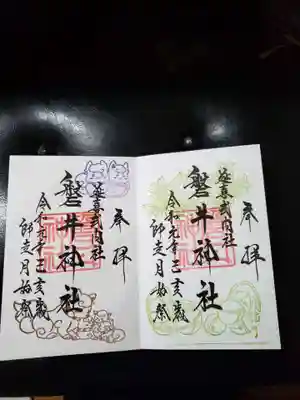 奉拝
延喜式内社
磐井神社
令和元年己亥歳
師走月始祭
奉拝
延喜式内社
磐井神社
令和元年己亥歳
師走月始祭